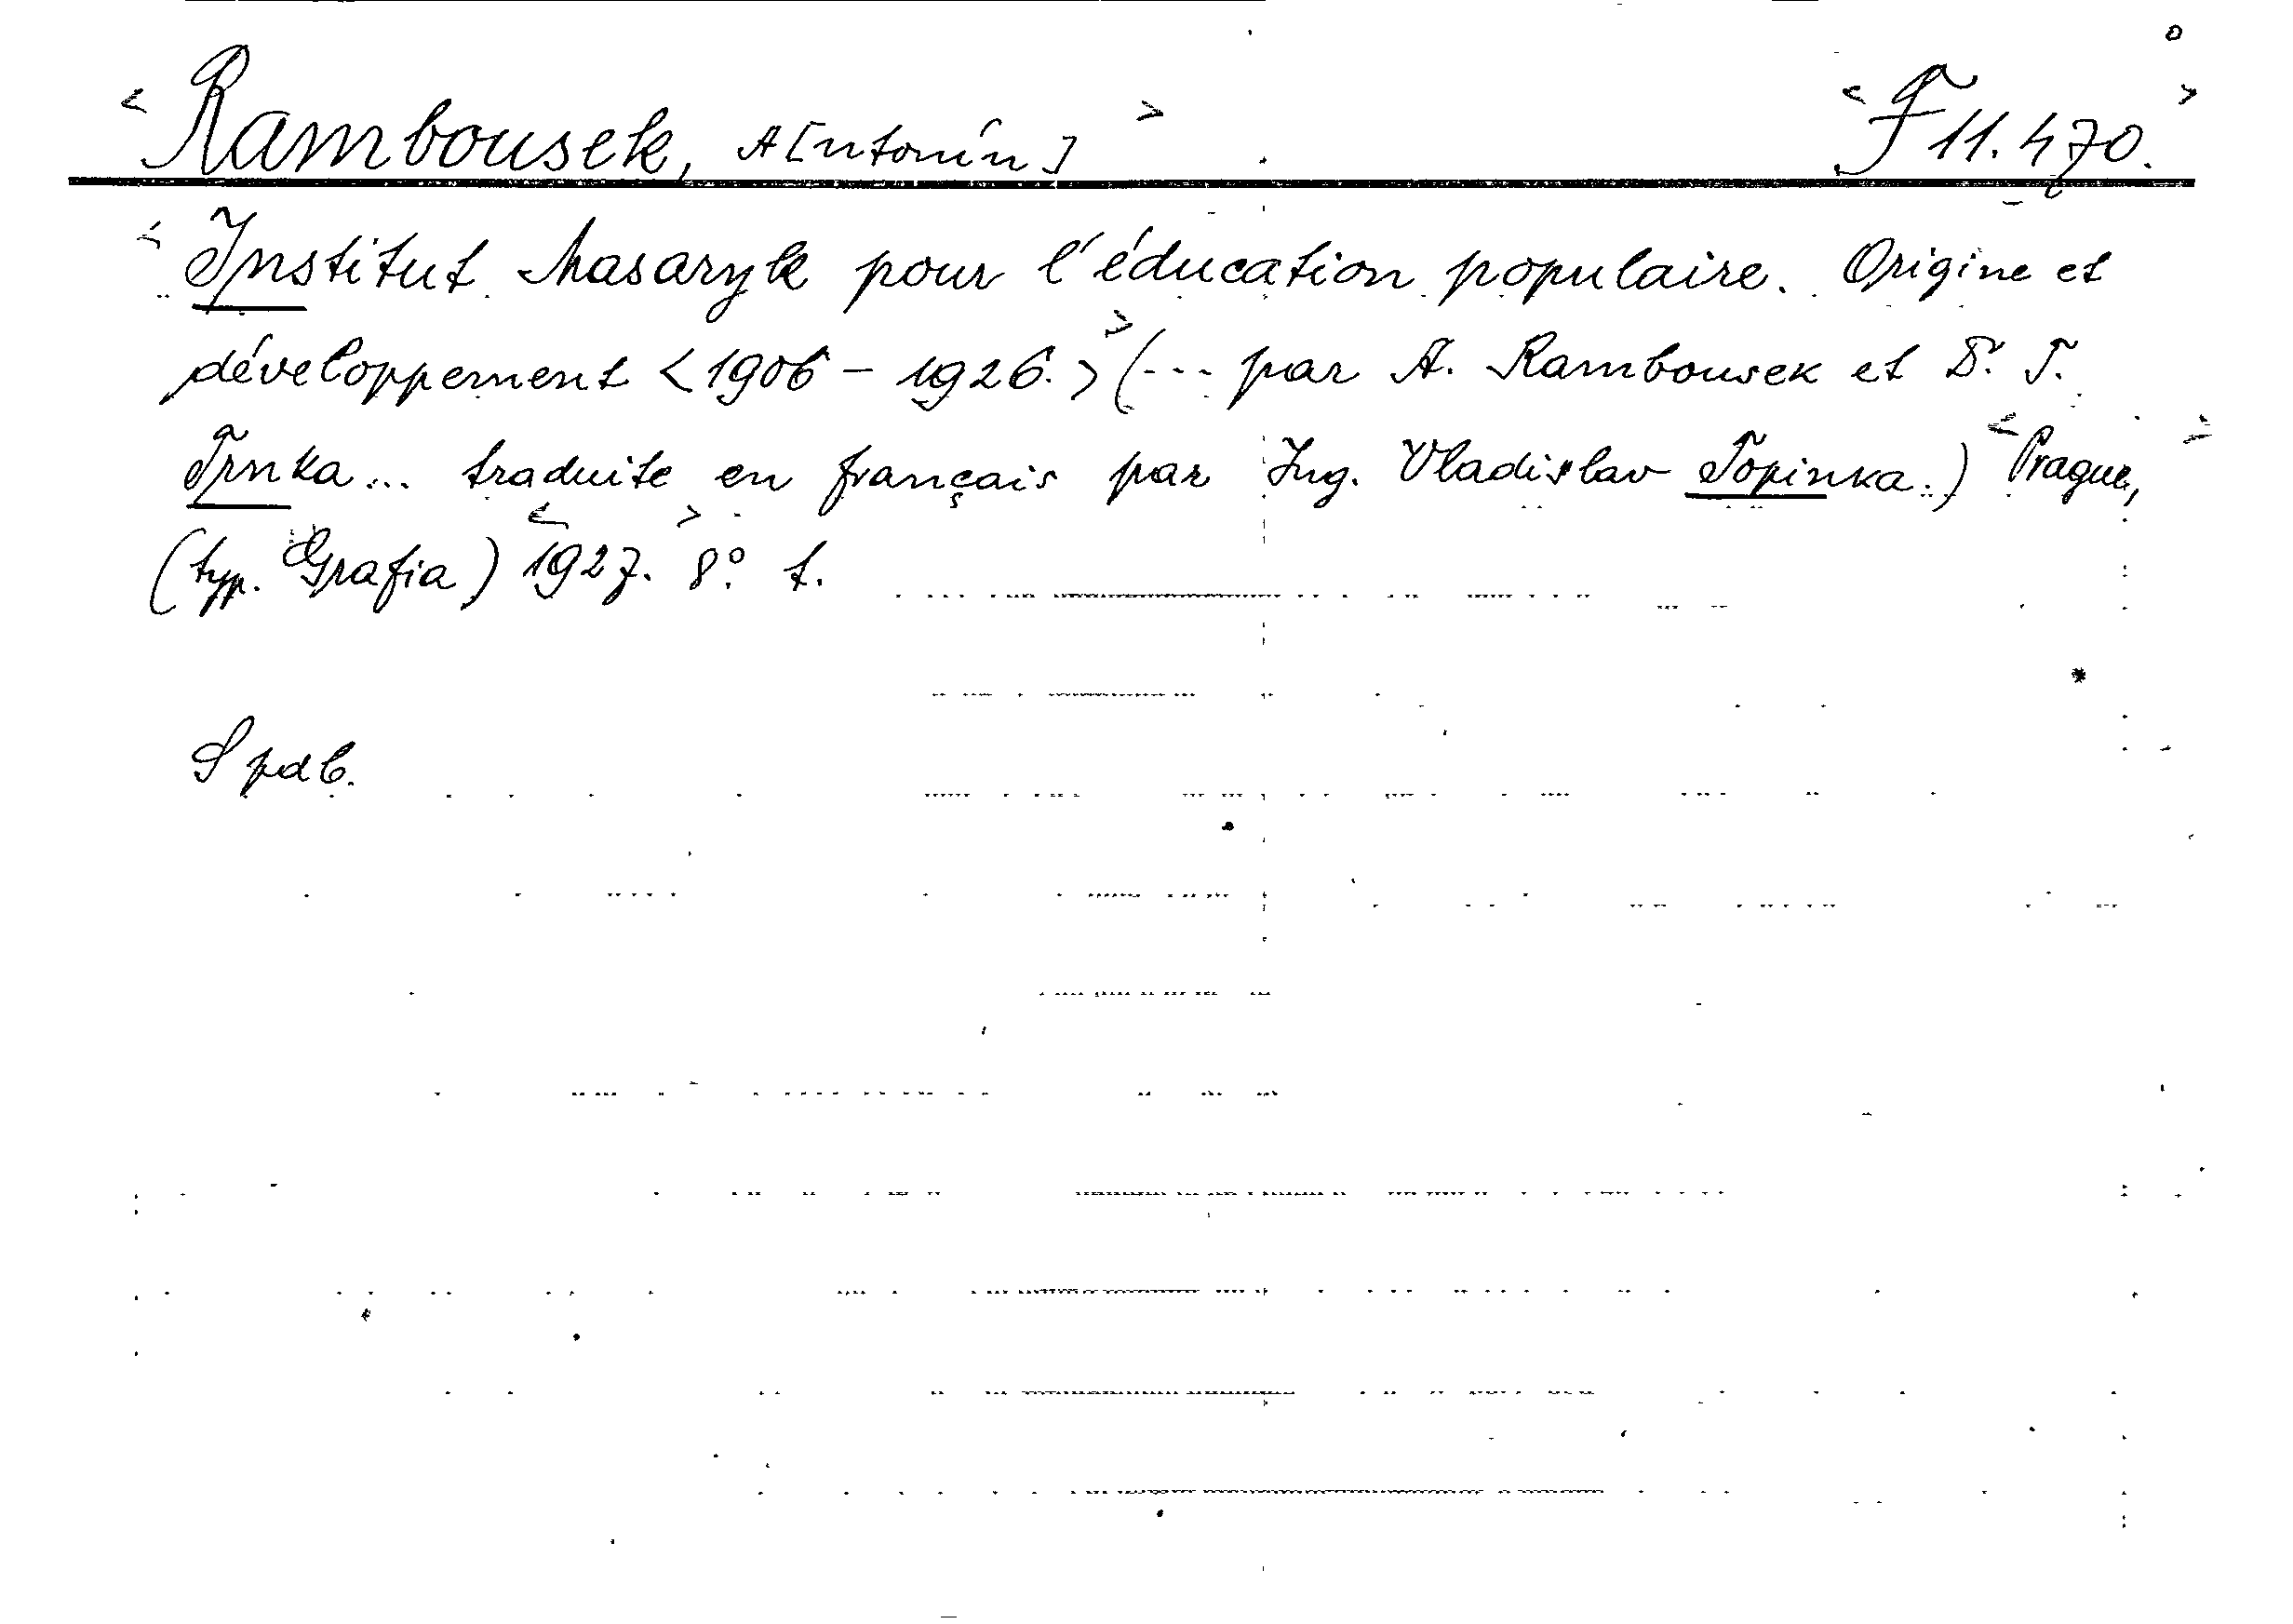 < Rambousek, A[ntonín] > < F 11.470. >
< Institut Masaryk pour l'éducation populaire. Origine et
développement <1906 - 1926.> > (... par A. Rambousek et D. T.
Trnka... traduite en français par Ing. Vladislav Topinka.) < Prague, >
(typ. Grafia) < 1927. > 8° t.
S pdb.